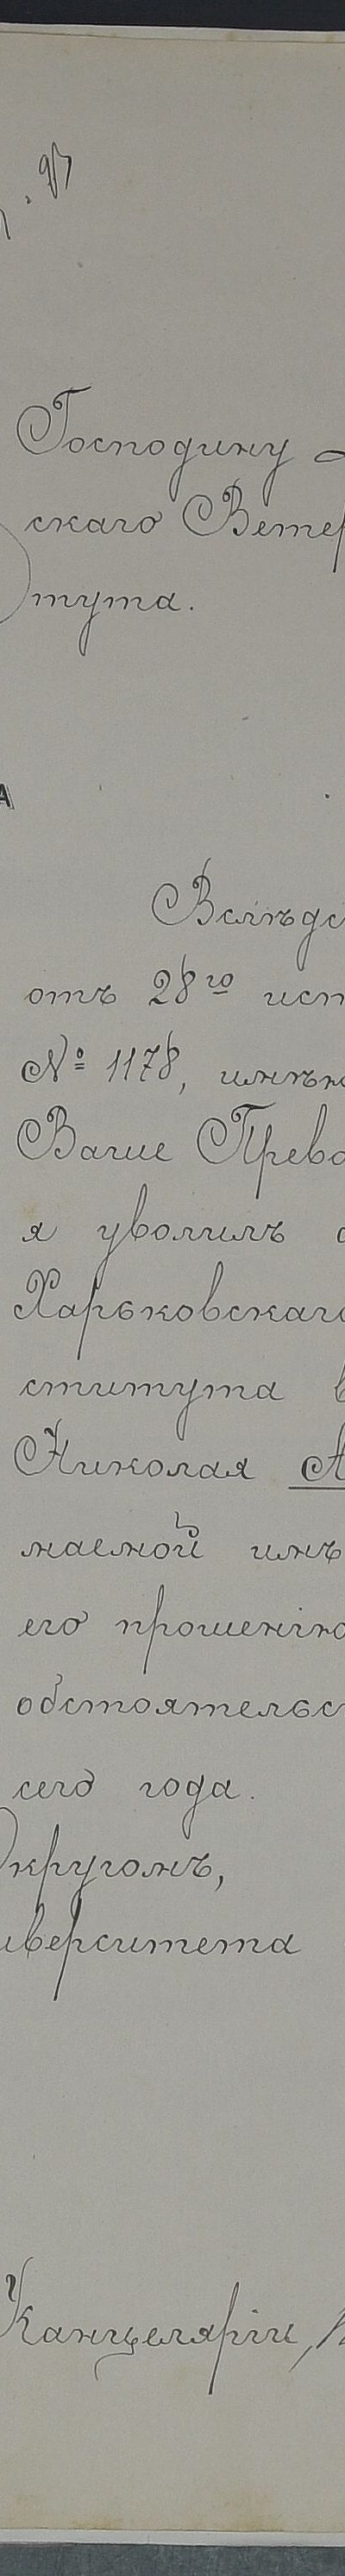 Господину
скаго Ветер
тута.
А
Вслѣдс
отъ 28го ист
№ 1178, имѣю
Ваше Прево
я уволилъ
Харьковскаго
ститута в
Николая А
маемой имъ
его прошенію
обстоятельс
сего года.
Округомъ,
иверситета
Канцеляріи,